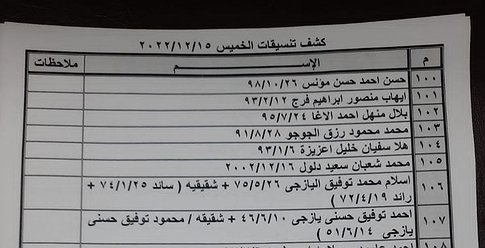 كشف تنسيقات الخميس ٢٠٢٢/١٢/١٥
م الإســـم ملاحظات
١٠٠ حسن احمد حسن مونس ٩٨/١٠/٢٦
١٠١ ايهاب منصور ابراهيم فرج ٩٣/٢/١٢
١٠٢ بلال منهل احمد الاغا ٩٥/٧/٢٤
١٠٣ محمد محمود رزق الجوجو ٩١/٨/٢٨
١٠٤ هلا سفيان خليل اعزيزة ٩٣/١/٦
١٠٥ محمد شعبان سعيد دلول ٢٠٠٢/١٢/١٦
١٠٦ اسلام محمد توفيق اليازجي ٧٥/٥/٢٦ + شقيقيه ( سائد ٧٤/١/٢٥ +
رائد ٧٢/٤/١٩ )
١٠٧ احمد توفيق حسنى يازجي ٤٦/٦/١٠ + شقيقه / محمود توفيق حسنى
يازجي ٥١/٦/١٤ )
١٠٨